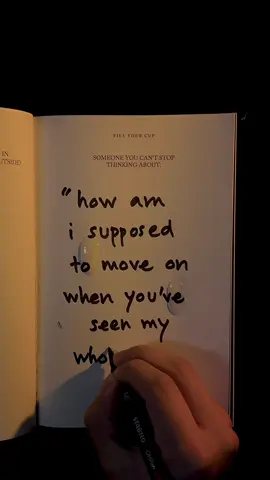 FILL YOUR CUP
SOMEONE YOU CAN'T STOP
THINKING ABOUT.
"how am
i supposed
to move on
when you've
seen my
who